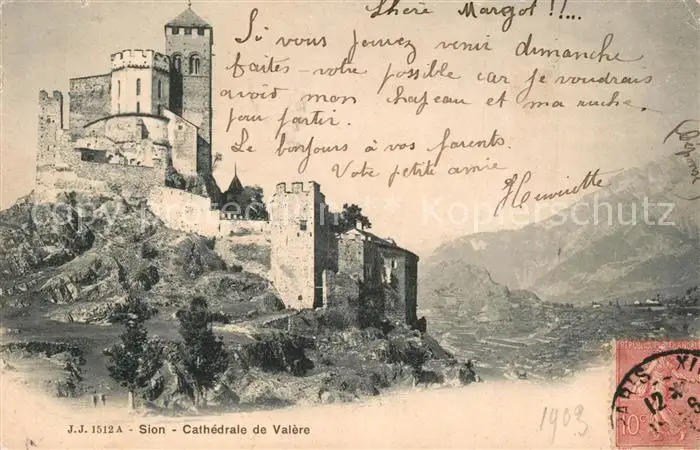 Chère Margot !!...
Si vous pouvez venir dimanche
faites-votre possible car je voudrais
avoir mon chapeau et ma ruche
pour partir.
Le bonjours à vos parents.
Votre petite amie
Henriette
Copyright Kunst und Kulturschutz
J.J. 1512 A - Sion - Cathédrale de Valère
1903
PARIS XI
12
10c